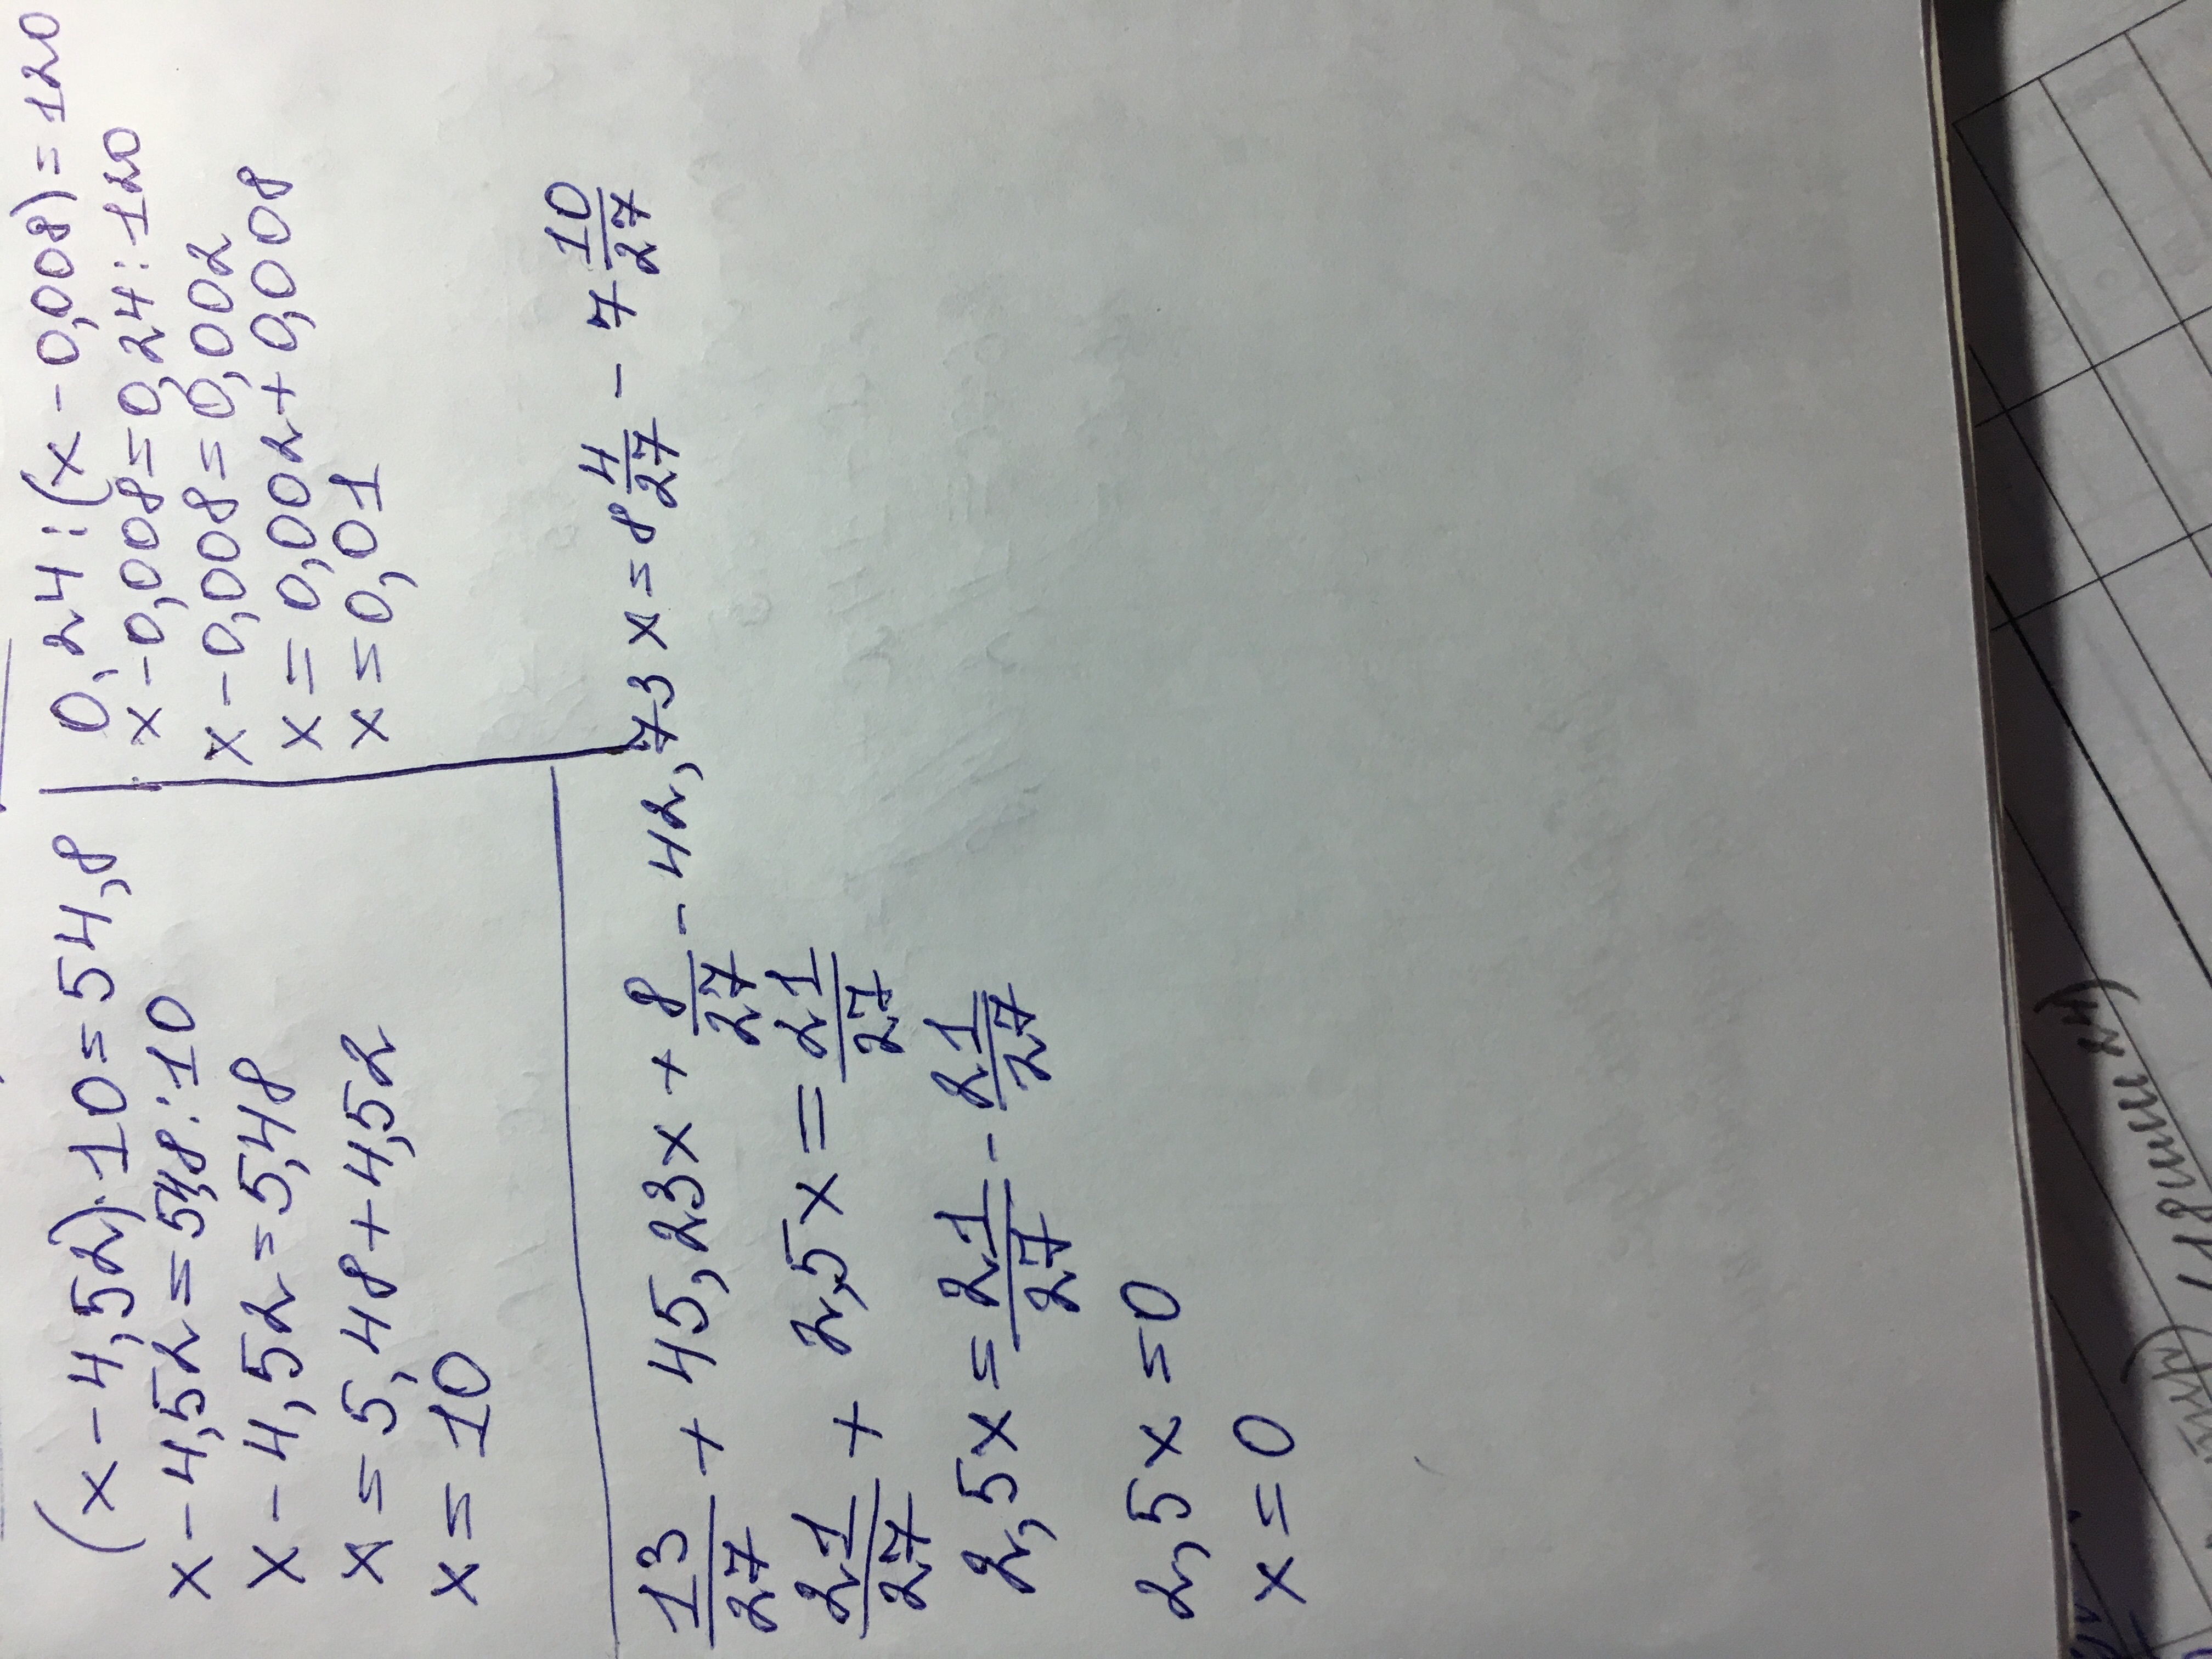 (x-4,52)·10=54,8
x-4,52=54,8:10
x-4,52=5,48
x=5,48+4,52
x=10
0,24:(x-0,008)=120
x-0,008=0,24:120
x-0,008=0,002
x=0,002+0,008
x=0,01
13/27 + 45,23x + 8/27 - 42,73x = 8 4/27 - 7 10/27
21/27 + 2,5x = 21/27
2,5x = 21/27 - 21/27
2,5x=0
x=0